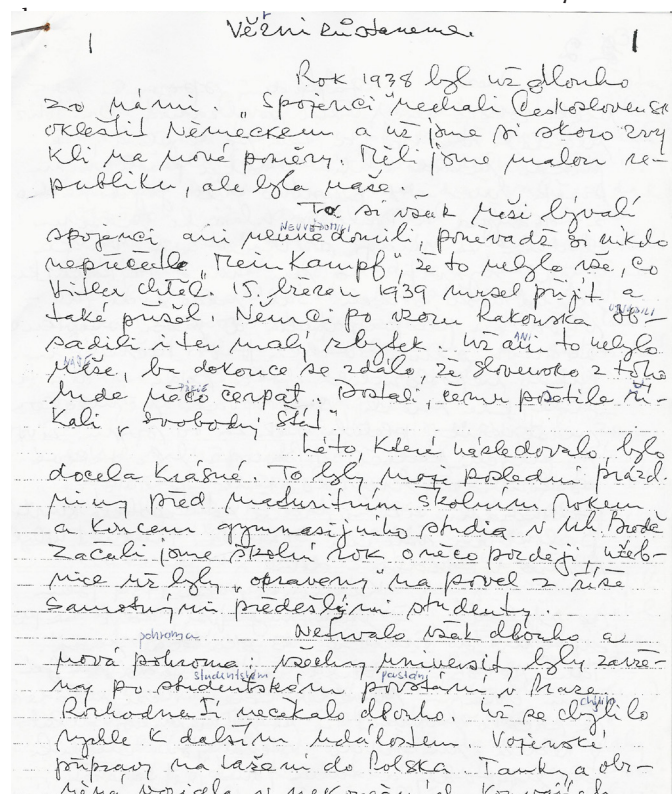 Věrni zůstaneme.
1 1
Rok 1938 byl už dlouho
za námi. „Spojenci" nechali Českosloven
oklestit Německem a už jsme si skoro zvy
kli na nové poměry. Měli jsme malou re-
publiku, ale byla naše.
To si však naši bývalí
NEUVĚDOMILI
spojenci ani neuvědomili, poněvadž si nikdo
nepřečetl „Mein Kampf", že to nebylo vše, co
Hitler chtěl. 15. březen 1939 musel přijít a
také přišel. Němci po vzoru Rakouska ob-
sadili i ten malý zbytek. Už ani to nebylo
ANI
naše, ba dokonce se zdálo, že Slovensko z toho
bude něco čerpat. Dostali, čemu pošetile ří-
kali „svobodný štát"
Léto, které následovalo, bylo
docela krásné. To byly moje poslední prázd-
niny před maturitním školním rokem
a koncem gymnasijního studia v Uh. Brodě
Začali jsme školní rok o něco později, učeb-
nice už byly „opraveny" na povel z říše
samotnými předešlými studenty.
Netrvalo však dlouho a
pohroma
nová pohroma; všechny university byly zavře-
studentském povstání
ny po studentském povstání v Praze.
Rozhodnutí nečekalo dlouho. Už se chýlilo
chýlilo
rychle k dalším událostem. Vojenské
přípravy na tažení do Polska. Tanky a obr-
něná vozidla